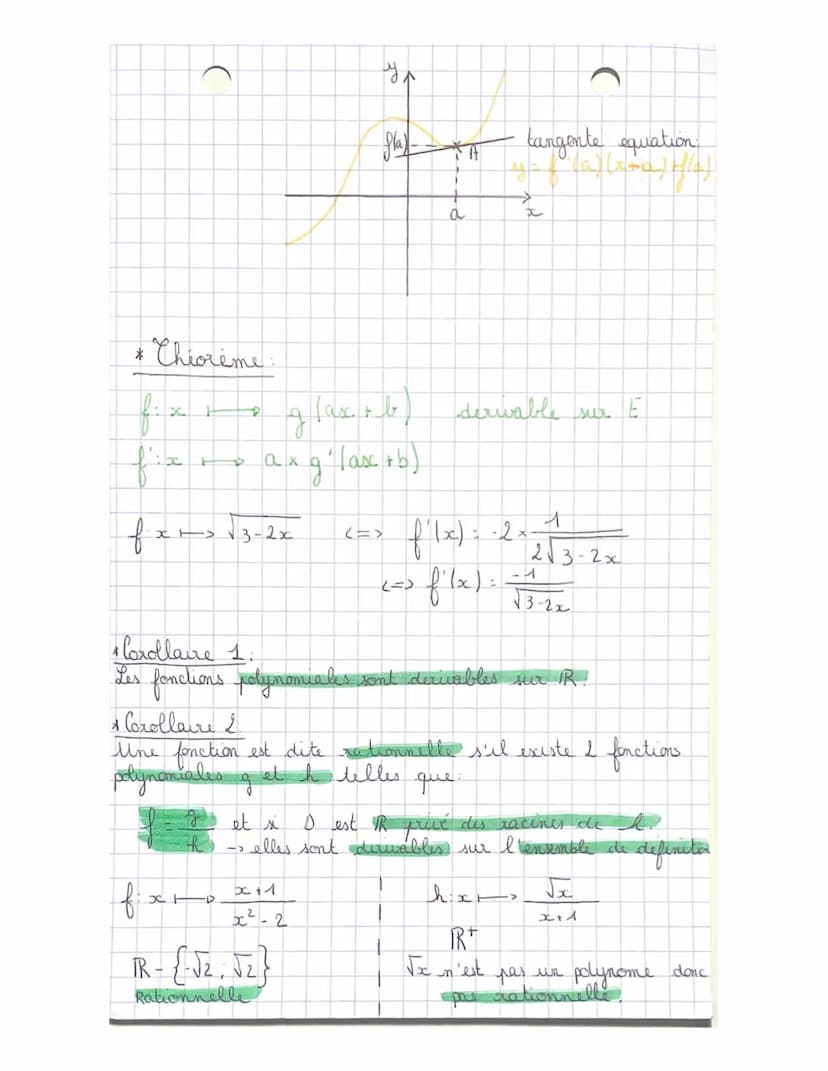 y
f(a)
A
tangente equation:
y = f'(a)(x-a)+f(a)
a
x
* Théorème:
f: x ⟼ g(ax + b) derivable sur E
f': x ⟼ a × g'(ax + b)
f: x ⟼ √(3-2x) <=> f'(x) = -2 × 1/(2√(3-2x))
<=> f'(x) = -1/√(3-2x)
* Corollaire 1:
Les fonctions polynomiales sont derivables sur ℝ.
* Corollaire 2
Une fonction est dite rationnelle s'il existe 2 fonctions
polynomiales g et h telles que:
f = g/h et si D est ℝ privé des racines de h.
-> elles sont derivables sur l'ensemble de definition
f: x ⟼ (x+1)/(x²-2)
ℝ - {-√2 ; √2}
Rationnelle
h: x ⟼ √x/(x+1)
ℝ+
√x n'est pas un polynome donc
pas rationnelle.